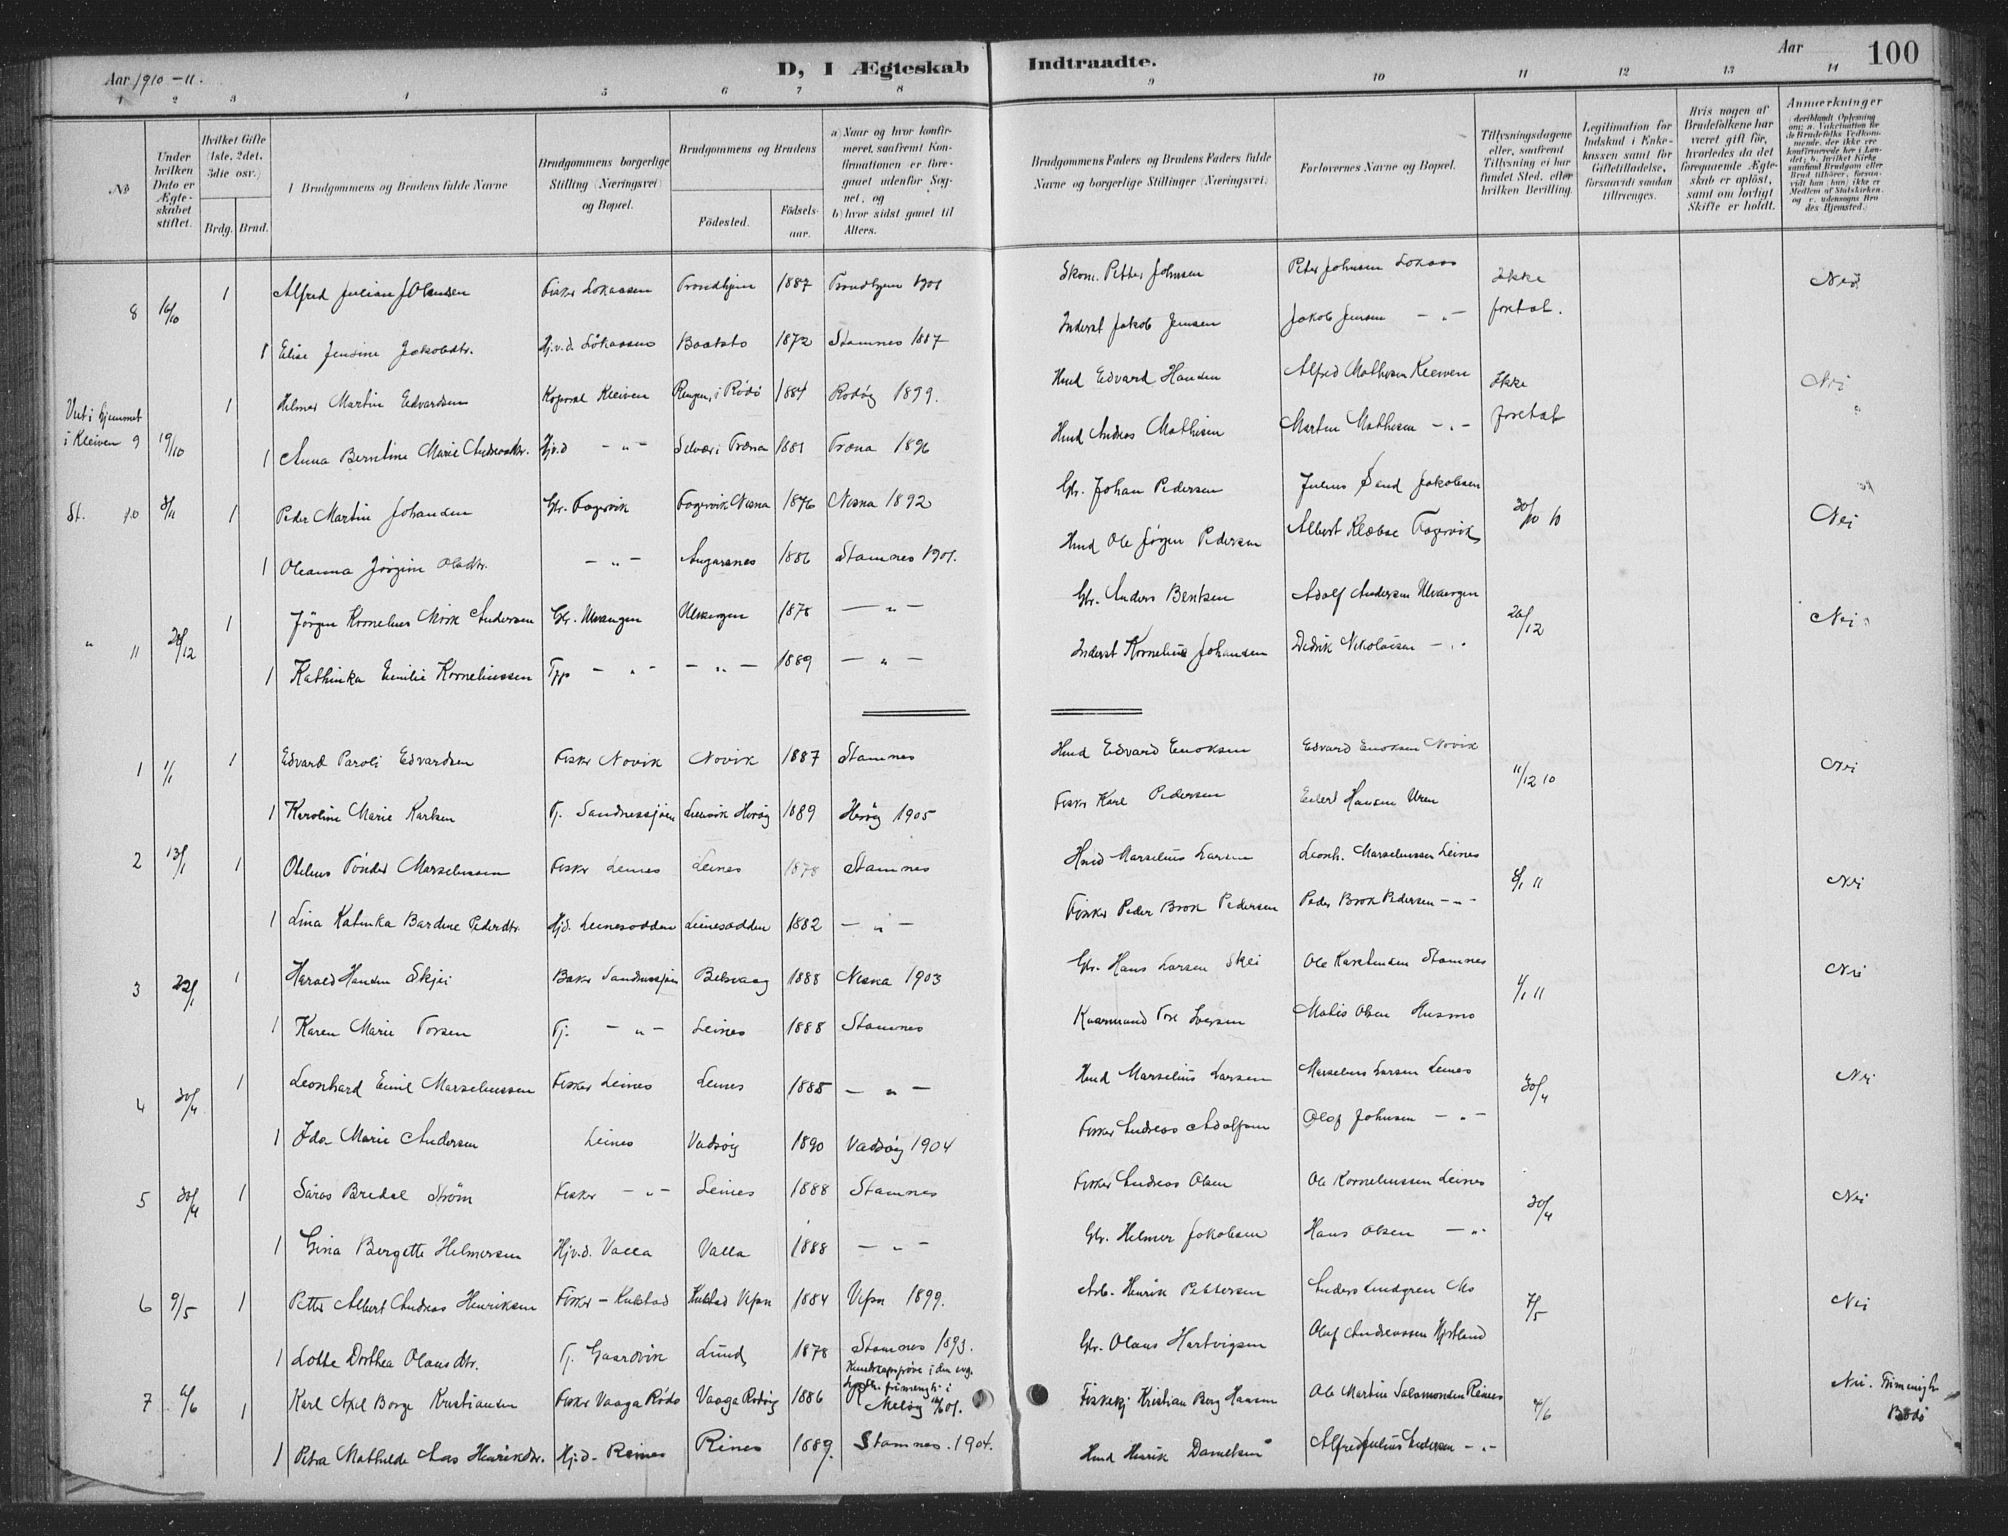 Aar 1910 – 11.
D, I Ægteskab Indtraadte.
Aar 100
1 2 3 4 5 6 7 8 9 10 11 12 13 14
No
Under hvilken Dato er Ægteskabet stiftet.
Hvilket Gifte (1ste, 2det, 3die osv.)
Brdg. Brud.
Brudgommens og Brudens fulde Navne
Brudgommens borgerlige Stilling (Næringsvei) og Bopæl.
Brudgommens og Brudens
Födested. Födsels-aar.
a) Naar og hvor konfirmeret, saafremt Konfirmationen er foregaaet udenfor Sognet, og
b) hvor sidst gaaet til Alters.
Brudgommens Faders og Brudens Faders fulde Navne og borgerlige Stillinger (Næringsvei)
Forlovernes Navne og Bopæl.
Tillysningsdagene eller, saafremt Tillysning ei har fundet Sted, efter hvilken Bevilling.
Legitimation for Indskud i Enkekassen samt for Giftetilladelse, forsaavidt saadan tiltrænges.
Hvis nogen af Brudefolkene har været gift för, hvorledes da det foregaaende Ægteskab er oplöst, samt om lovligt Skifte er holdt.
Anmærkninger
8 16/10 1 Alfred Julian Fisker Trondhjem 1887 Trondhjem 1901 Skom. Petter Johnsen Peter Johnsen Ikke Nei
1 Elise Jensine Jakobdtr. Hj.v.d. 1872 Stamnes 1887 Inderst Jakob Jensen Jakob Jensen — " — foretat.
Viet i hjemmet i Kleiven 9 19/10 1 Helmer Martin Edvardsen Kleiven i Rödö 1884 Rodöy 1899. Hmd Edvard Hansen Alfred Mathisen Kleiven Ikke Nei
1 Anna Berntine Marie Hjv.d — " — Selvær i Træna 1881 Træna 1896 Hmd Andreas Mathisen Martin Mathisen — " — foretat
St. 10 1 Peder Martin Johansen Gbr. Fagervik Fagervik Nesna 1876 Nesna 1892 Gbr. Johan Pedersen Julius Sund Jakobsen 30/10 10 Nei
1 Oleanna Jörgine Olsdtr. — " — Angarsnes 1886 Stamnes 1901. Hmd Ole Jörgen Pedersen Albert Klæboe Fagervik
" 11 26/12 1 Jörgen Kornelius Mörk Andersen Gbr. Ulvangen Ulvangen 1878 — " — Gbr. Anders Bentsen Adolf Andersen Ulvangen 26/12 Nei
1 Kathinka Emilie Korneliussen — " — — " — 1889 — " — Inderst Kornelius Johansen Didrik Nikolaisen — "
1 1/1 1 Edvard Paroli Edvardsen Fisker Novik Novik 1887 Stamnes Hmd Edvard Enoksen Edvard Enoksen Novik 11/12 10 Nei
1 Karoline Marie Karlsen Tj. Sandnessjöen Heröy 1889 Heröy 1905 Fisker Karl Pedersen Eilert Hansen Uren
2 13/1 1 Otelius Tönder Marseliussen Fisker Leines Leines 1878 Stamnes Hmd Marselius Larsen Leonh. Marseliussen Leines 6/1 11 Nei
1 Lina Katinka Bardine Pederdtr. Hjd. Leinesodden Leinesodden 1882 — " — Fisker Peder Brok Pedersen Peder Brok Pedersen — " —
3 22/1 1 Harald Hansen Skjei Baker Sandnessjöen Belsvaag 1888 Nesna 1903 Gbr. Hans Larsen Skei Ole Karstensen Stamnes 1/1 11 Nei
1 Karen Marie Torsen Tj. — " — Leines 1888 Stamnes Kvarmand Tore Iversen Mathis Olsen Husmo
4 30/4 1 Leonhard Emil Marseliussen Fisker Leines Leines 1885 — " — Hmd Marselius Larsen Marselius Larsen Leines 30/4 Nei
1 Ida Marie Andersen Leines Vadsöy 1890 Vadsöy 1904 Fisker Andreas Adolfsen Olaf Johnsen — " —
5 30/4 1 Sören Bredal Ström Fisker — " — Leines 1888 Stamnes Fisker Andreas Olsen Ole Korneliussen Leines 30/4 Nei
1 Gina Bergette Helmersen Hjv.d. Valla Valla 1888 — " — Gbr. Helmer Jakobsen Hans Olsen — "
6 9/5 1 Petter Albert Andreas Henriksen Fisker – Kulstad Kulstad Vefsn 1884 Vefsn 1899. Arb. Henrik Pettersen Anders Lundgren Mo 7/5 Nei
1 Lotte Dorthea Olausdtr. Tj. Gaardvik Lund 1878 Stamnes 1893. Gbr. Olaus Hartvigsen Olaf Andreassen Hjertland
7 6/6 1 Karl Axel Borge Kristiansen Fisker Vaaga Rödö Vaaga Rodöy 1886 Kundskapspröve i den evg. Meløy Fiskekj Kristian Berg Hansen Ole Martin Salamonsen Reines 4/6 Nei. Bodö
1 Petra Mathilde Aas Henrikdtr. Hjd. Reines Rines 1889. Stamnes. 1904. Hmd Henrik Danielsen Alfred Julius Andersen — " —